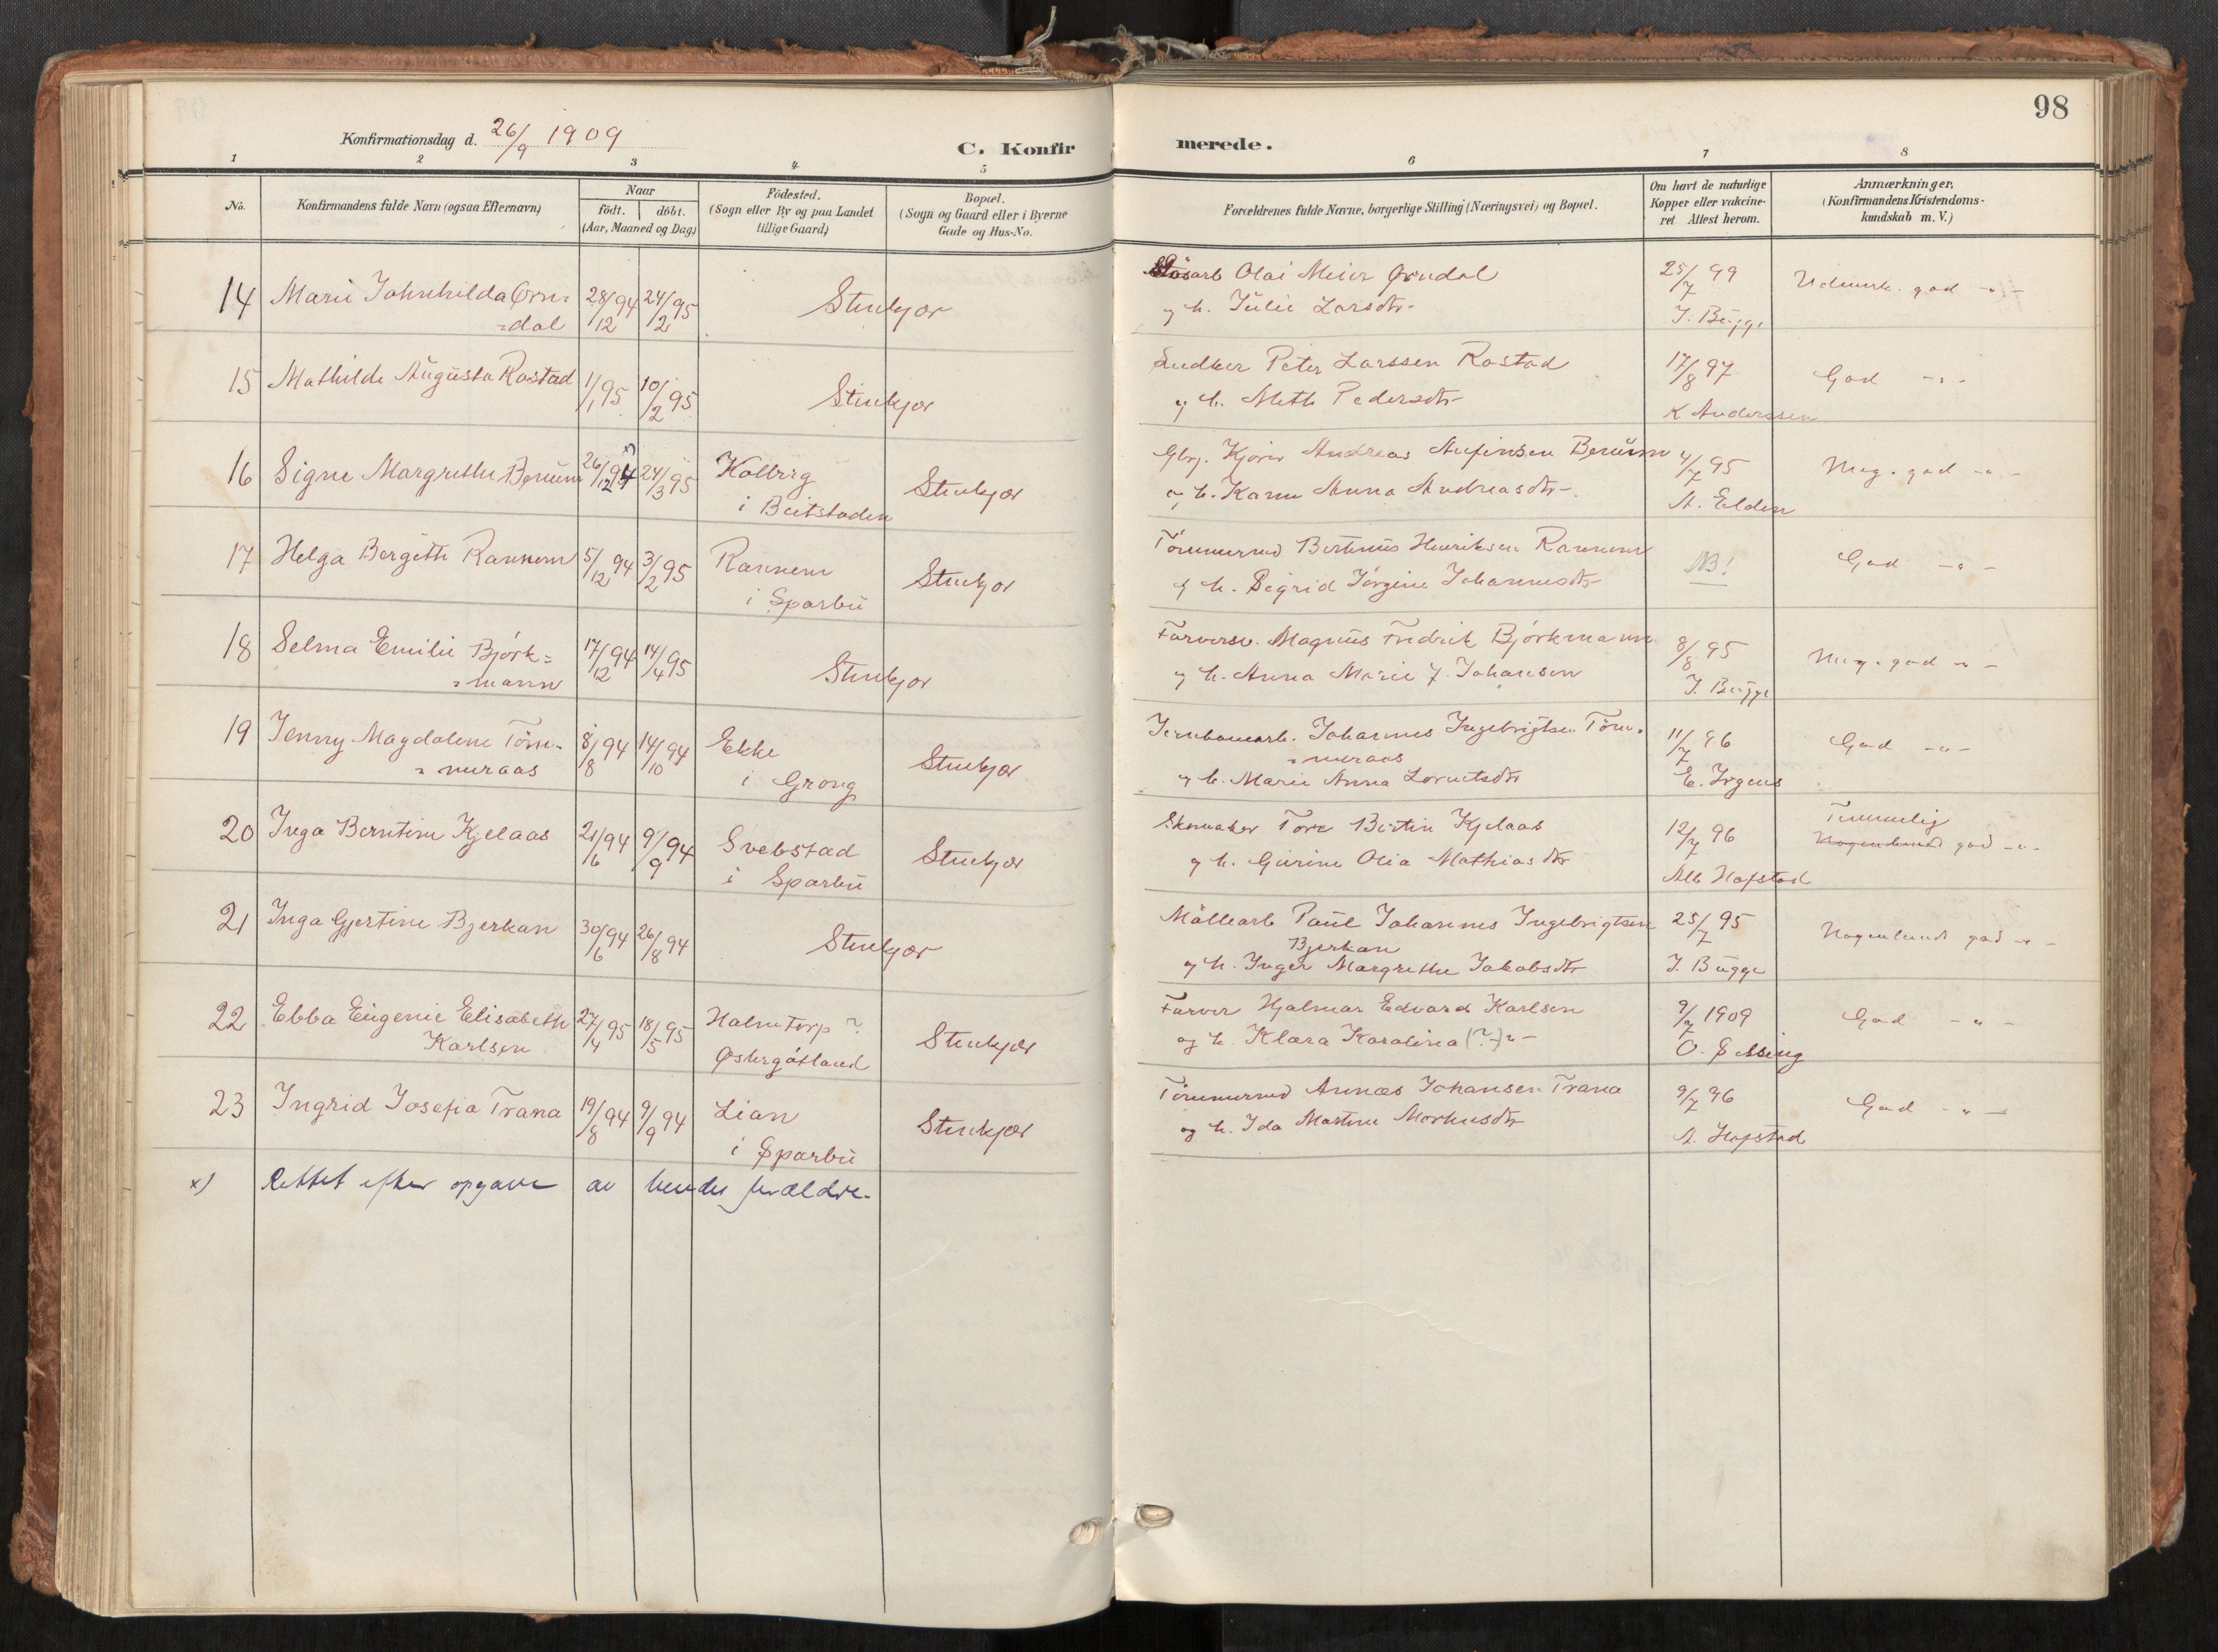 98
Konfirmationsdag d. 26/9 1909
C. Konfirmerede.
1 2 3 4 5 6 7 8
No.
Konfirmandens fulde Navn (ogsaa Efternavn)
Naar
födt. döbt.
(Aar, Maaned og Dag)
Födested.
(Sogn eller By og paa Landet
tillige Gaard)
Bopæl.
(Sogn og Gaard eller i Byerne
Gade og Hus-No.
Forældrenes fulde Navne, borgerlige Stilling (Næringsvei) og Bopæl.
Om havt de naturlige
Kopper eller vakcine-
ret Attest herom.
Anmærkninger.
(Konfirmandens Kristendoms-
kundskab m. V.)
14 Marie Johnhilda Ørn-
=dal
28/12 94 24/2 95 Stenkjær
Løsarb Olai Meier Ørndal
og h. Julie Larsdtr.
25/7 99
J. Bugge
Udmerk. god -"-
15 Mathilde Augusta Rostad 1/1 95 10/2 95 Stenkjær
Peter Larssen Rostad
og h. Meth Pedersdtr
17/8 97
K Anderssen
God -"-
16 Signe Margrethe Benum 26/12 94 x) 24/3 95 Kolberg
i Beitstaden
Stenkjær
Gbrj. Andreas Anfinsen Benum
og h. Karen Anna Andreasdtr.
4/7 95
A. Elden
Meg. god -"-
17 Helga Bergitte Rannem 5/12 94 3/2 95 Rannem
i Sparbu
Stenkjær
Tömmermd Bertinus Henriksen Rannem
og h. Sigrid Jörgine Johannesdtr
NB!
God -"-
18 Selma Emilie Björk=
=mann
17/12 94 14/4 95 Stenkjær
Farversv. Magnus Fredrik Björkmann
og h. Anna Marie f. Johansen
8/8 95
J. Bugge
Meg. god -"-
19 Jenny Magdalene Töm-
=meraas
8/8 94 14/10 94 Ekke
i Grong
Stenkjær
Jernbanearb. Johannes Ingebrigtsen Töm-
=meraas
og h. Marie Anna Lorentsdtr
11/7 96
E. Irgens
God -"-
20 Inga Berntine Kjelaas 21/6 94 9/9 94 Svebstad
i Sparbu
Stenkjær
Skomaker Tore Bertin Kjelaas
og h. Gurine Olia Mathiasdtr
12/7 96
Alb Hafstad
Temmelig
Nogenlunde god -"-
21 Inga Gjertine Bjerkan 30/6 94 26/8 94 Stenkjær
Möllearb Paul Johannes Ingebrigtsen
Bjerkan
og h. Inger Margrethe Jakobsdtr
25/7 95
J. Bugge
Nogenlunde god -"-
22 Ebba Eugenie Elisabeth
Karlsen
27/4 95 18/5 95 Halmetorp ?
Østergötland
Stenkjær
Farver Hjalmar Edvard Karlsen
og h. Klara Karolina (?) -"-
9/7 1909
God -"-
23 Ingrid Josefia Trana 19/8 94 9/9 94 Lian
i Sparbu
Stenkjær
Tömmermd Annæs Johansen Trana
og h. Ida Martine Markusdtr
9/7 96
A. Hafstad
God -"-
x) Rettet efter opgave av hendes forældre.